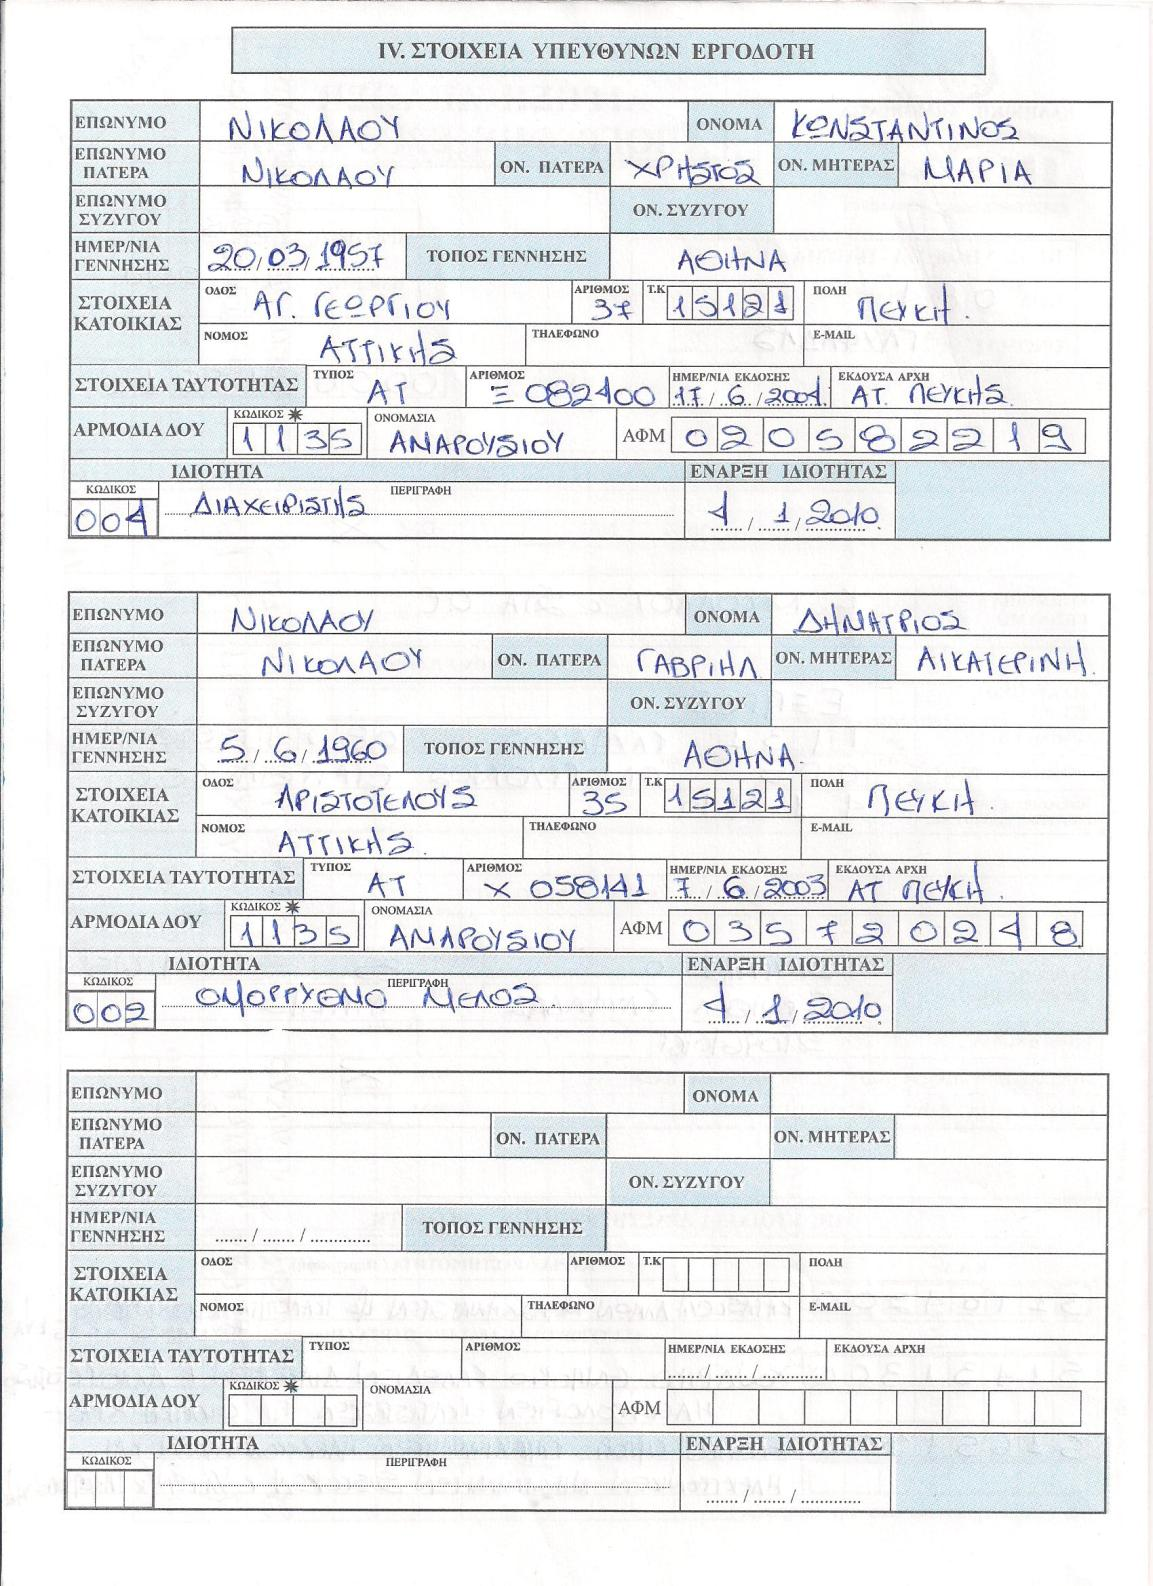 IV. ΣΤΟΙΧΕΙΑ ΥΠΕΥΘΥΝΩΝ ΕΡΓΟΔΟΤΗ
ΕΠΩΝΥΜΟ ΝΙΚΟΛΑΟΥ ΟΝΟΜΑ ΚΩΝΣΤΑΝΤΙΝΟΣ
ΕΠΩΝΥΜΟ ΠΑΤΕΡΑ ΝΙΚΟΛΑΟΥ ΟΝ. ΠΑΤΕΡΑ ΧΡΗΣΤΟΣ ΟΝ. ΜΗΤΕΡΑΣ ΜΑΡΙΑ
ΕΠΩΝΥΜΟ ΣΥΖΥΓΟΥ ΟΝ. ΣΥΖΥΓΟΥ
ΗΜΕΡ/ΝΙΑ ΓΕΝΝΗΣΗΣ 20/03/1957 ΤΟΠΟΣ ΓΕΝΝΗΣΗΣ ΑΘΗΝΑ
ΣΤΟΙΧΕΙΑ ΚΑΤΟΙΚΙΑΣ ΟΔΟΣ ΑΓ. ΓΕΩΡΓΙΟΥ ΑΡΙΘΜΟΣ 37 Τ.Κ 15121 ΠΟΛΗ ΠΕΥΚΗ.
ΝΟΜΟΣ ΑΤΤΙΚΗΣ ΤΗΛΕΦΩΝΟ E-MAIL
ΣΤΟΙΧΕΙΑ ΤΑΥΤΟΤΗΤΑΣ ΤΥΠΟΣ ΑΤ ΑΡΙΘΜΟΣ Ξ 082400 ΗΜΕΡ/ΝΙΑ ΕΚΔΟΣΗΣ 17/6/2001 ΕΚΔΟΥΣΑ ΑΡΧΗ ΑΤ. ΠΕΥΚΗΣ.
ΑΡΜΟΔΙΑ ΔΟΥ ΚΩΔΙΚΟΣ 1135 ΟΝΟΜΑΣΙΑ ΑΜΑΡΟΥΣΙΟΥ ΑΦΜ 020582219
ΙΔΙΟΤΗΤΑ ΕΝΑΡΞΗ ΙΔΙΟΤΗΤΑΣ
ΚΩΔΙΚΟΣ 001 ΠΕΡΙΓΡΑΦΗ ΔΙΑΧΕΙΡΙΣΤΗΣ 1/1/2010
ΕΠΩΝΥΜΟ ΝΙΚΟΛΑΟΥ ΟΝΟΜΑ ΔΗΜΑΤΡΙΟΣ
ΕΠΩΝΥΜΟ ΠΑΤΕΡΑ ΝΙΚΟΛΑΟΥ ΟΝ. ΠΑΤΕΡΑ ΓΑΒΡΙΗΛ ΟΝ. ΜΗΤΕΡΑΣ ΑΙΚΑΤΕΡΙΝΗ.
ΕΠΩΝΥΜΟ ΣΥΖΥΓΟΥ ΟΝ. ΣΥΖΥΓΟΥ
ΗΜΕΡ/ΝΙΑ ΓΕΝΝΗΣΗΣ 5/6/1960 ΤΟΠΟΣ ΓΕΝΝΗΣΗΣ ΑΘΗΝΑ.
ΣΤΟΙΧΕΙΑ ΚΑΤΟΙΚΙΑΣ ΟΔΟΣ ΑΡΙΣΤΟΤΕΛΟΥΣ ΑΡΙΘΜΟΣ 35 Τ.Κ 15121 ΠΟΛΗ ΠΕΥΚΗ.
ΝΟΜΟΣ ΑΤΤΙΚΗΣ. ΤΗΛΕΦΩΝΟ E-MAIL
ΣΤΟΙΧΕΙΑ ΤΑΥΤΟΤΗΤΑΣ ΤΥΠΟΣ ΑΤ ΑΡΙΘΜΟΣ Χ 058141 ΗΜΕΡ/ΝΙΑ ΕΚΔΟΣΗΣ 7/6/2003 ΕΚΔΟΥΣΑ ΑΡΧΗ ΑΤ ΠΕΥΚΗ.
ΑΡΜΟΔΙΑ ΔΟΥ ΚΩΔΙΚΟΣ 1135 ΟΝΟΜΑΣΙΑ ΑΜΑΡΟΥΣΙΟΥ ΑΦΜ 035720218
ΙΔΙΟΤΗΤΑ ΕΝΑΡΞΗ ΙΔΙΟΤΗΤΑΣ
ΚΩΔΙΚΟΣ 002 ΠΕΡΙΓΡΑΦΗ ΟΜΟΡΡΥΘΜΟ ΜΕΛΟΣ. 1/1/2010
ΕΠΩΝΥΜΟ ΟΝΟΜΑ
ΕΠΩΝΥΜΟ ΠΑΤΕΡΑ ΟΝ. ΠΑΤΕΡΑ ΟΝ. ΜΗΤΕΡΑΣ
ΕΠΩΝΥΜΟ ΣΥΖΥΓΟΥ ΟΝ. ΣΥΖΥΓΟΥ
ΗΜΕΡ/ΝΙΑ ΓΕΝΝΗΣΗΣ ...... / ...... / ............ ΤΟΠΟΣ ΓΕΝΝΗΣΗΣ
ΣΤΟΙΧΕΙΑ ΚΑΤΟΙΚΙΑΣ ΟΔΟΣ ΑΡΙΘΜΟΣ Τ.Κ ΠΟΛΗ
ΝΟΜΟΣ ΤΗΛΕΦΩΝΟ E-MAIL
ΣΤΟΙΧΕΙΑ ΤΑΥΤΟΤΗΤΑΣ ΤΥΠΟΣ ΑΡΙΘΜΟΣ ΗΜΕΡ/ΝΙΑ ΕΚΔΟΣΗΣ ...... / ...... / ............ ΕΚΔΟΥΣΑ ΑΡΧΗ
ΑΡΜΟΔΙΑ ΔΟΥ ΚΩΔΙΚΟΣ ΟΝΟΜΑΣΙΑ ΑΦΜ
ΙΔΙΟΤΗΤΑ ΕΝΑΡΞΗ ΙΔΙΟΤΗΤΑΣ
ΚΩΔΙΚΟΣ ΠΕΡΙΓΡΑΦΗ ...... / ...... / ............